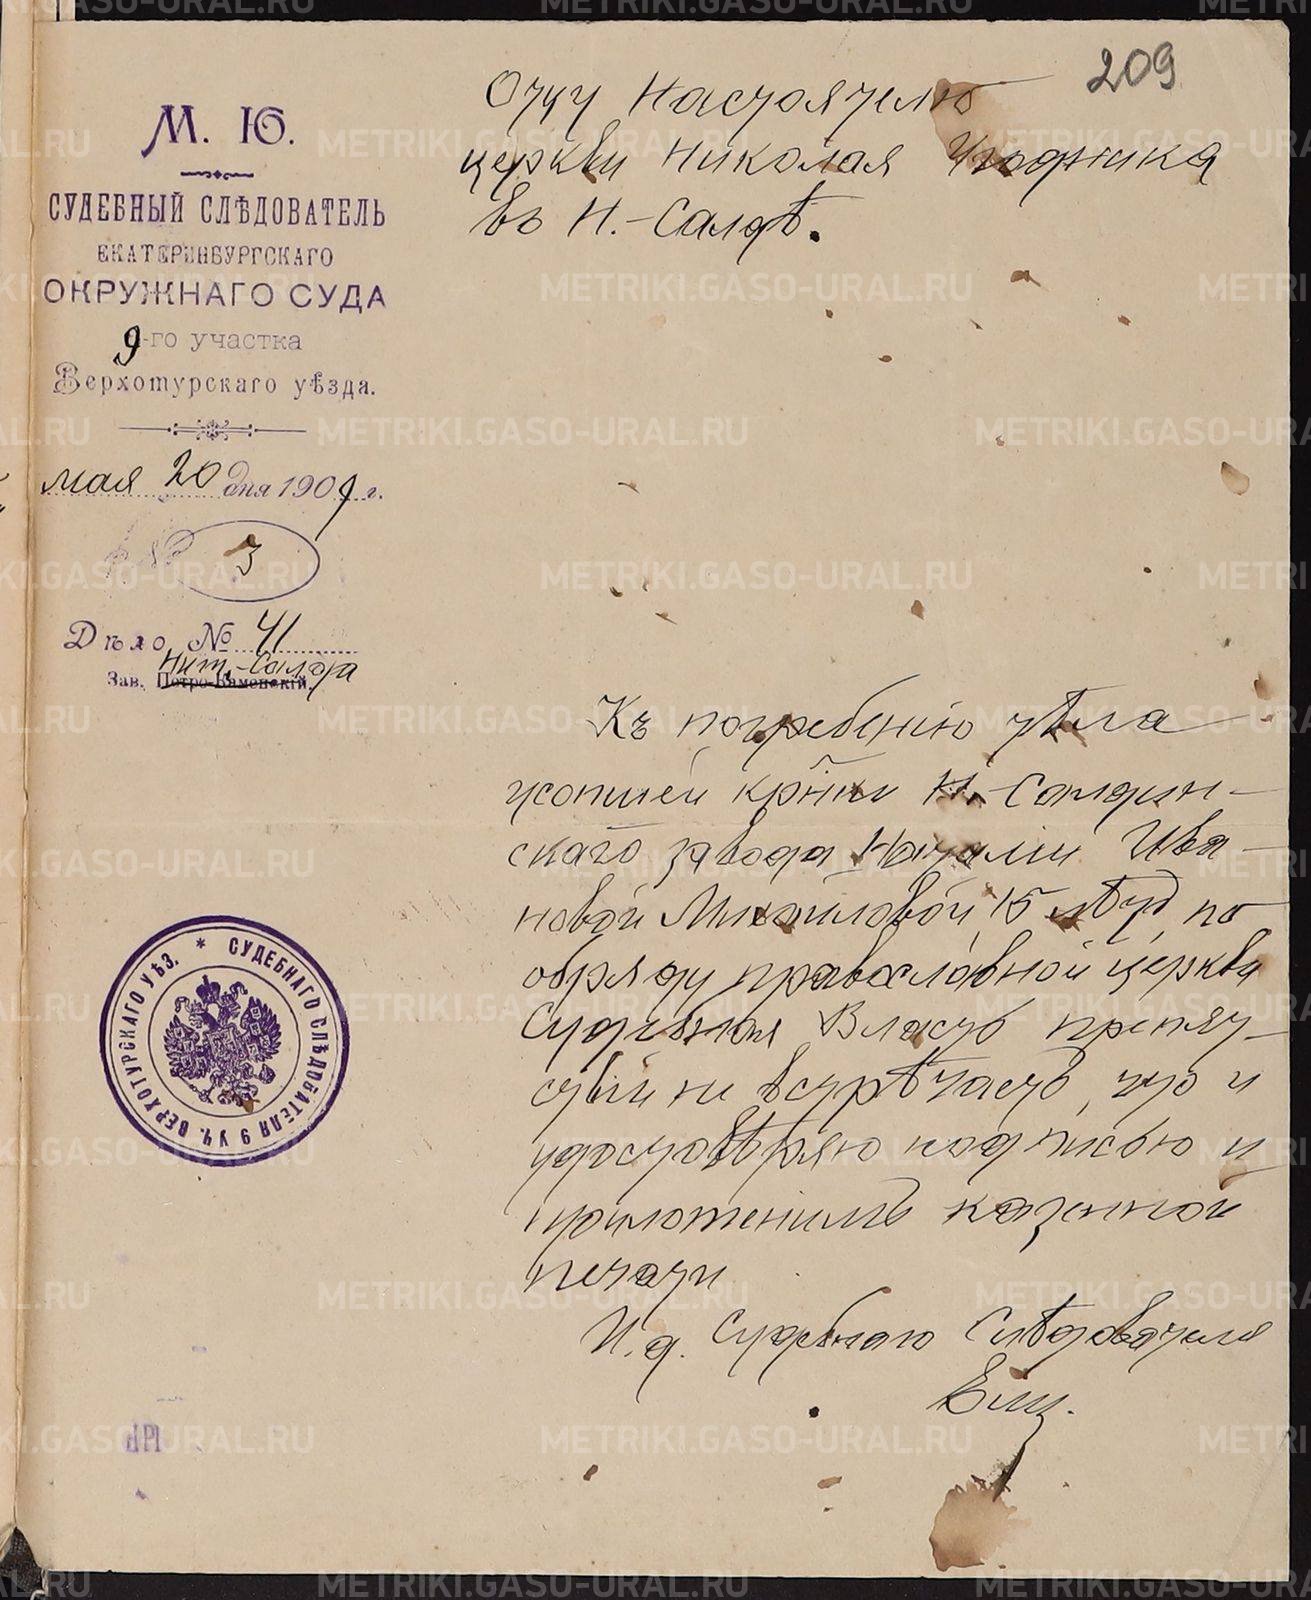 209
М. Ю.
СУДЕБНЫЙ СЛѢДОВАТЕЛЬ
ЕКАТЕРИНБУРГСКАГО
ОКРУЖНАГО СУДА
9-го участка
Верхотурскаго уѣзда.
мая 20 дня 1909 г.
№ 3
Дѣло № 41
Ниж.-Салда
Зав. Петро-Каменскій.
Отцу Настоятелю
церкви Николая Угодника
въ Н.-Салдѣ.
Къ погребенію тѣла
усопшей крнки Н.-Салдин-
скаго завода Наталіи Ива-
новой Михайловой, 15 лѣтъ, по
обряду православной церкви
Судебная Власть препят-
ствій не встрѣчаетъ, что и
удостовѣряю подписью и
приложеніемъ казенной
печати
И.д. Судебнаго Слѣдователя
СУДЕБНАГО СЛѢДОВАТЕЛЯ 9 УЧ. ВЕРХОТУРСКАГО УѢЗ. *
METRIKI.GASO-URAL.RU